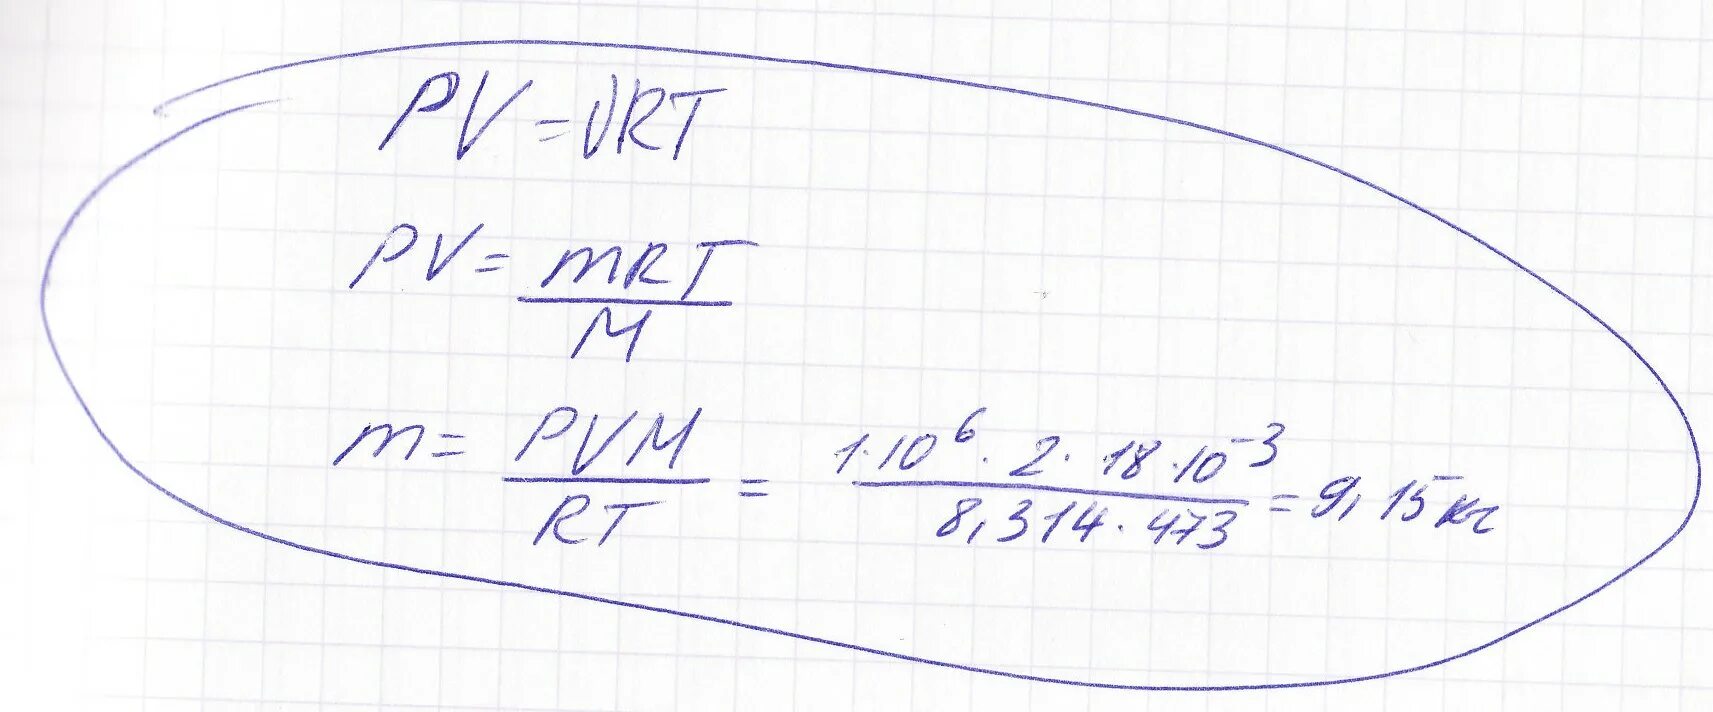 PV = νRT
PV = mRT / M
m = PVM / RT = 1·10⁶·2·18·10⁻³ / 8,314·473 = 9,15 кг